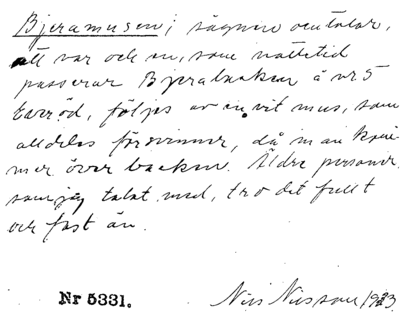 Bjeramusen; sägnen omtalar,
att var och en, som nattetid
passerar Bjerabacken å nr 5
Everöd, följes av en vit mus, som
alldeles försvinner, då man kom-
mer över backen. Äldre personer
som jag talat med, tro det fullt
och fast än.
Nr 5331. Nils Nilsson 1923.